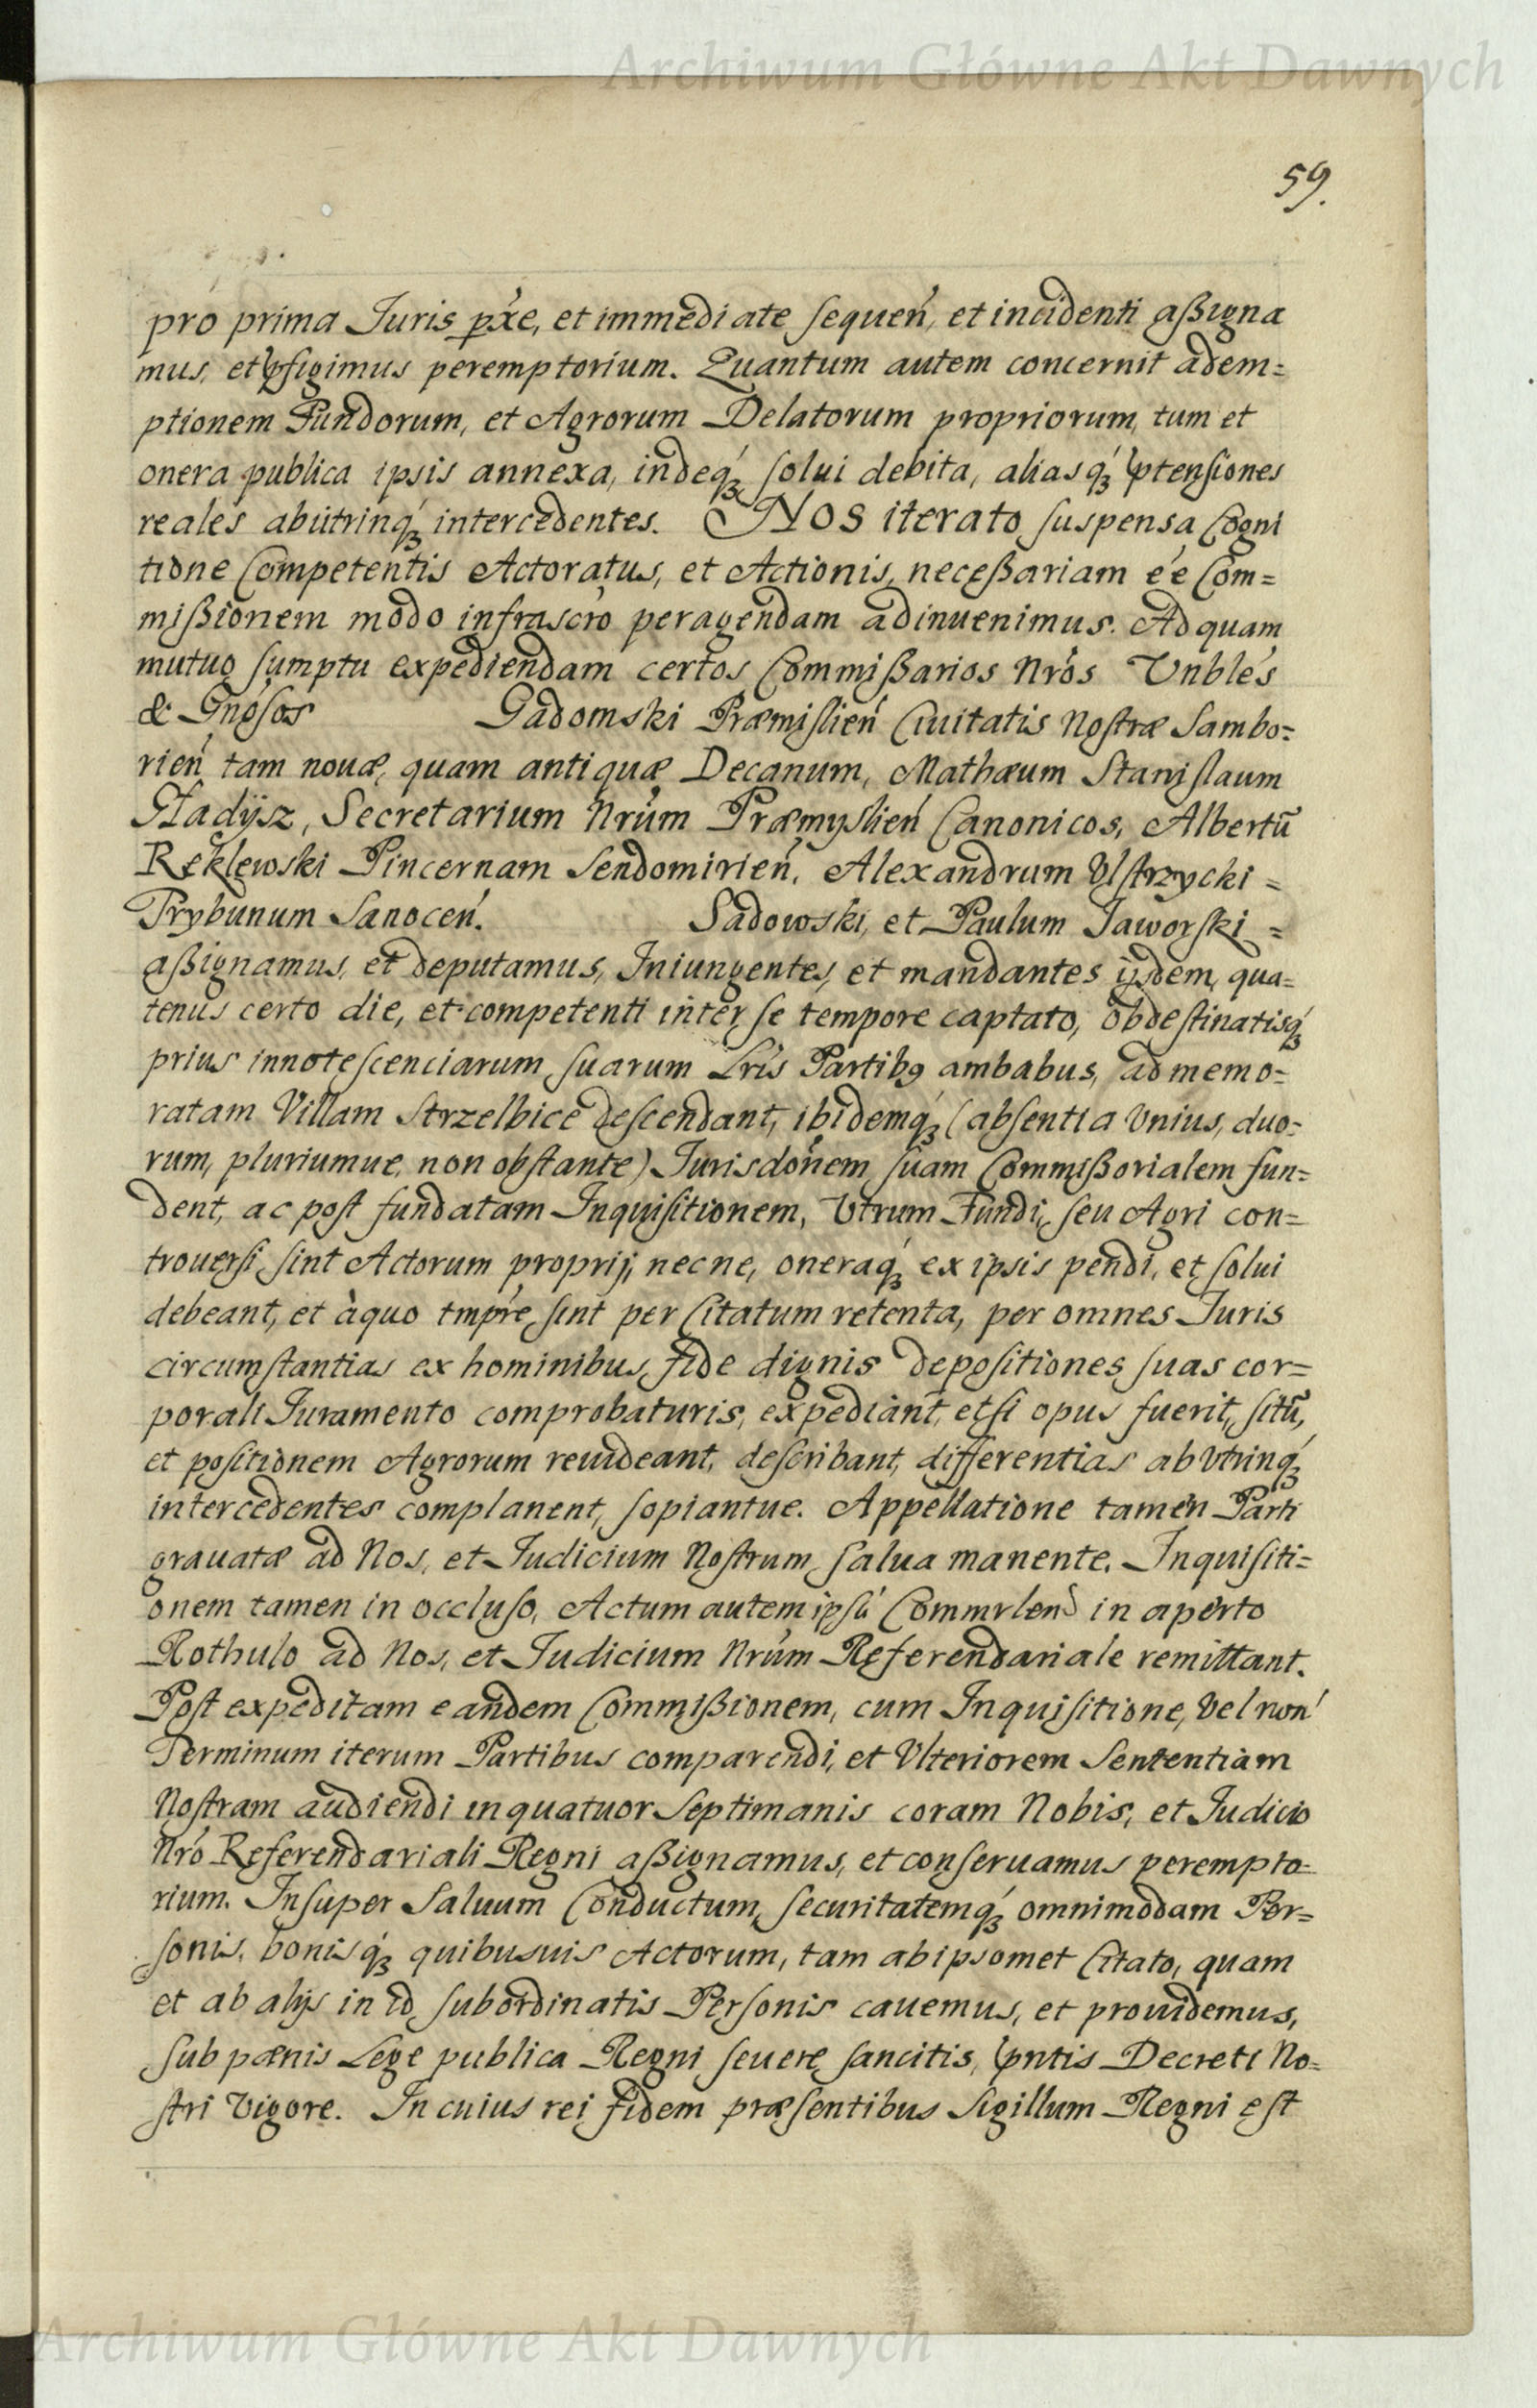 Archiwum Główne Akt Dawnych
59.
pro prima Juris p̱x́e, et immediate sequeń, et incidenti aßigna
mus, et p̱figimus peremptorium. Quantum autem concernit adem=
ptionem Fundorum, et Agrorum Delatorum propriorum, tum et
onera publica ipsis annexa, indeq́ꝫ solui debita, aliasq́ꝫ p̱tensiones
reales abutrinq́ꝫ intercedentes. NOS iterato suspensa Cogni
tione Competentis Actoratus, et Actionis, neceßariam eé Com=
mißionem modo infrascro peragendam adinuenimus. Ad quam
mutuo sumptu expediendam certos Commißarios Nrós Vnblés
& Gnósos Gadomski Præmislień Ciuitatis Nostræ Sambo=
rień tam nouæ, quam antiquæ Decanum, Mathæum Stanislaum
Gładÿsz, Secretarium Nrúm Præmyslień Canonicos, Albertū
Ręklewski Pincernam Sendomirień, Alexandrum Vstrzycki =
Trybunum Sanoceń. Sadowski, et Paulum Jaworski =
aßignamus, et deputamus, Iniungentes, et mandantes ijsdem, qua=
tenus certo die, et competenti inter se tempore captato, obdestinatisq́ꝫ
prius innotescenciarum suarum Lrís Partibꝯ ambabus, ad memo=
ratam Villam Strzelbice descendant, ibidemq́ꝫ (absentia Vnius, duo=
rum, pluriumue, non obstante) Jurisdónem suam Commißorialem fun=
dent, ac post fundatam Inquisitionem, Vtrum Fundi, seu Agri con=
trouersi, sint Actorum proprij, necne, oneraq́ꝫ ex ipsis pendi, et solui
debeant, et àquo tmpŕe sint per Citatum retenta, per omnes Juris
circumstantias ex hominibus, fide dignis depositiones suas cor=
porali Juramento comprobaturis, expediant, etsi opus fuerit, sitū,
et positionem Agrorum reuideant, describant, differentias abVtrinq́ꝫ
intercedentes complanent, sopiantue. Appellatione tamen Parti
grauatæ ad Nos, et Judicium Nostrum salua manente. Inquisiti=
onem tamen in occluso, Actum autem ipsú Commrlen in aperto
Rothulo ad Nos, et Judicium Nrúm Referendariale remittant.
Post expeditam eandem Commißionem, cum Inquisitione, Vel non
Terminum iterum Partibus comparendi, et Vlteriorem Sententiam
Nostram audiendi in quatuor Septimanis coram Nobis, et Judicio
Nró Referendariali Regni aßignamus, et conseruamus perempto=
rium. Insuper Saluum Conductum, securitatemq́ꝫ omnimodam Per=
sonis, bonisq́ꝫ quibusuis Actorum, tam abipsomet Citato, quam
et ab alijs in id subordinatis Personis cauemus, et prouidemus,
sub pænis Lege publica Regni seuere sancitis, p̱ntis Decreti No=
stri Vigore. In cuius rei fidem præsentibus Sigillum Regni est
Archiwum Główne Akt Dawnych